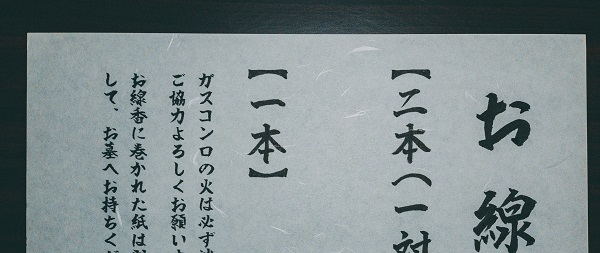 お線
【二本（一対
【一本】
ガスコンロの火は必ず
ご協力よろしくお願い
お線香に巻かれた紙は
して、お墓へお持ちくだ